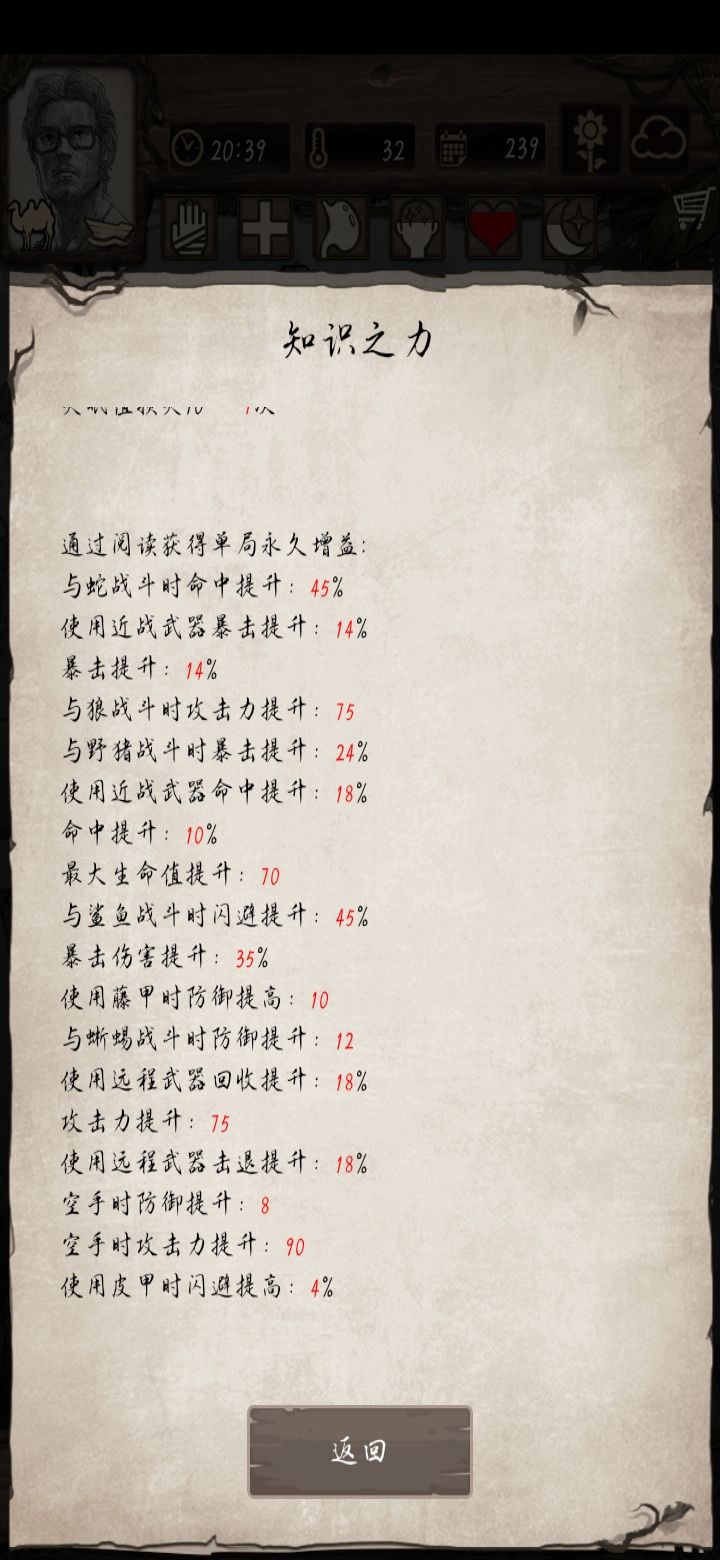 20:39
32
239
知识之力
通过阅读获得单局永久增益:
与蛇战斗时命中提升: 45%
使用近战武器暴击提升: 14%
暴击提升: 14%
与狼战斗时攻击力提升: 75
与野猪战斗时暴击提升: 24%
使用近战武器命中提升: 18%
命中提升: 10%
最大生命值提升: 70
与鲨鱼战斗时闪避提升: 45%
暴击伤害提升: 35%
使用藤甲时防御提高: 10
与蜥蜴战斗时防御提升: 12
使用远程武器回收提升: 18%
攻击力提升: 75
使用远程武器击退提升: 18%
空手时防御提升: 8
空手时攻击力提升: 90
使用皮甲时闪避提高: 4%
返回